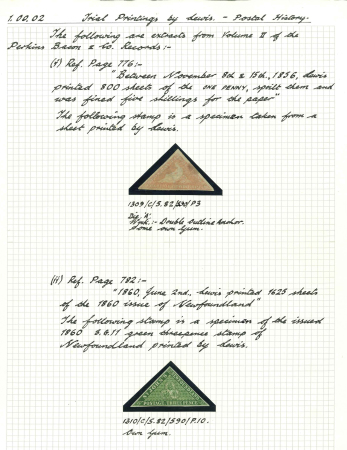 1.00.02 Trial Printings by Lewis. - Postal History.
The following are extracts from Volume II of the
Perkins Bacon & Co. Records:-
(i) Ref. Page 776:-
"Between November 8th & 15th, 1856, Lewis
printed 800 sheets of the ONE PENNY, spoilt them and
was fined five shillings for the paper"
The following stamp is a specimen taken from a
sheet printed by Lewis.
1309/C/S.82/590/P3
Die 'A'
Wmk:- Double Outline Anchor.
Some own Gum.
(ii) Ref. Page 782:-
"1860, June 2nd, Lewis printed 1625 sheets
of the 1860 issue of Newfoundland"
The following stamp is a specimen of the issued
1860 S.G.11 green threepence stamp of
Newfoundland printed by Lewis.
1310/C/S.82/590/P.10.
Own Gum.